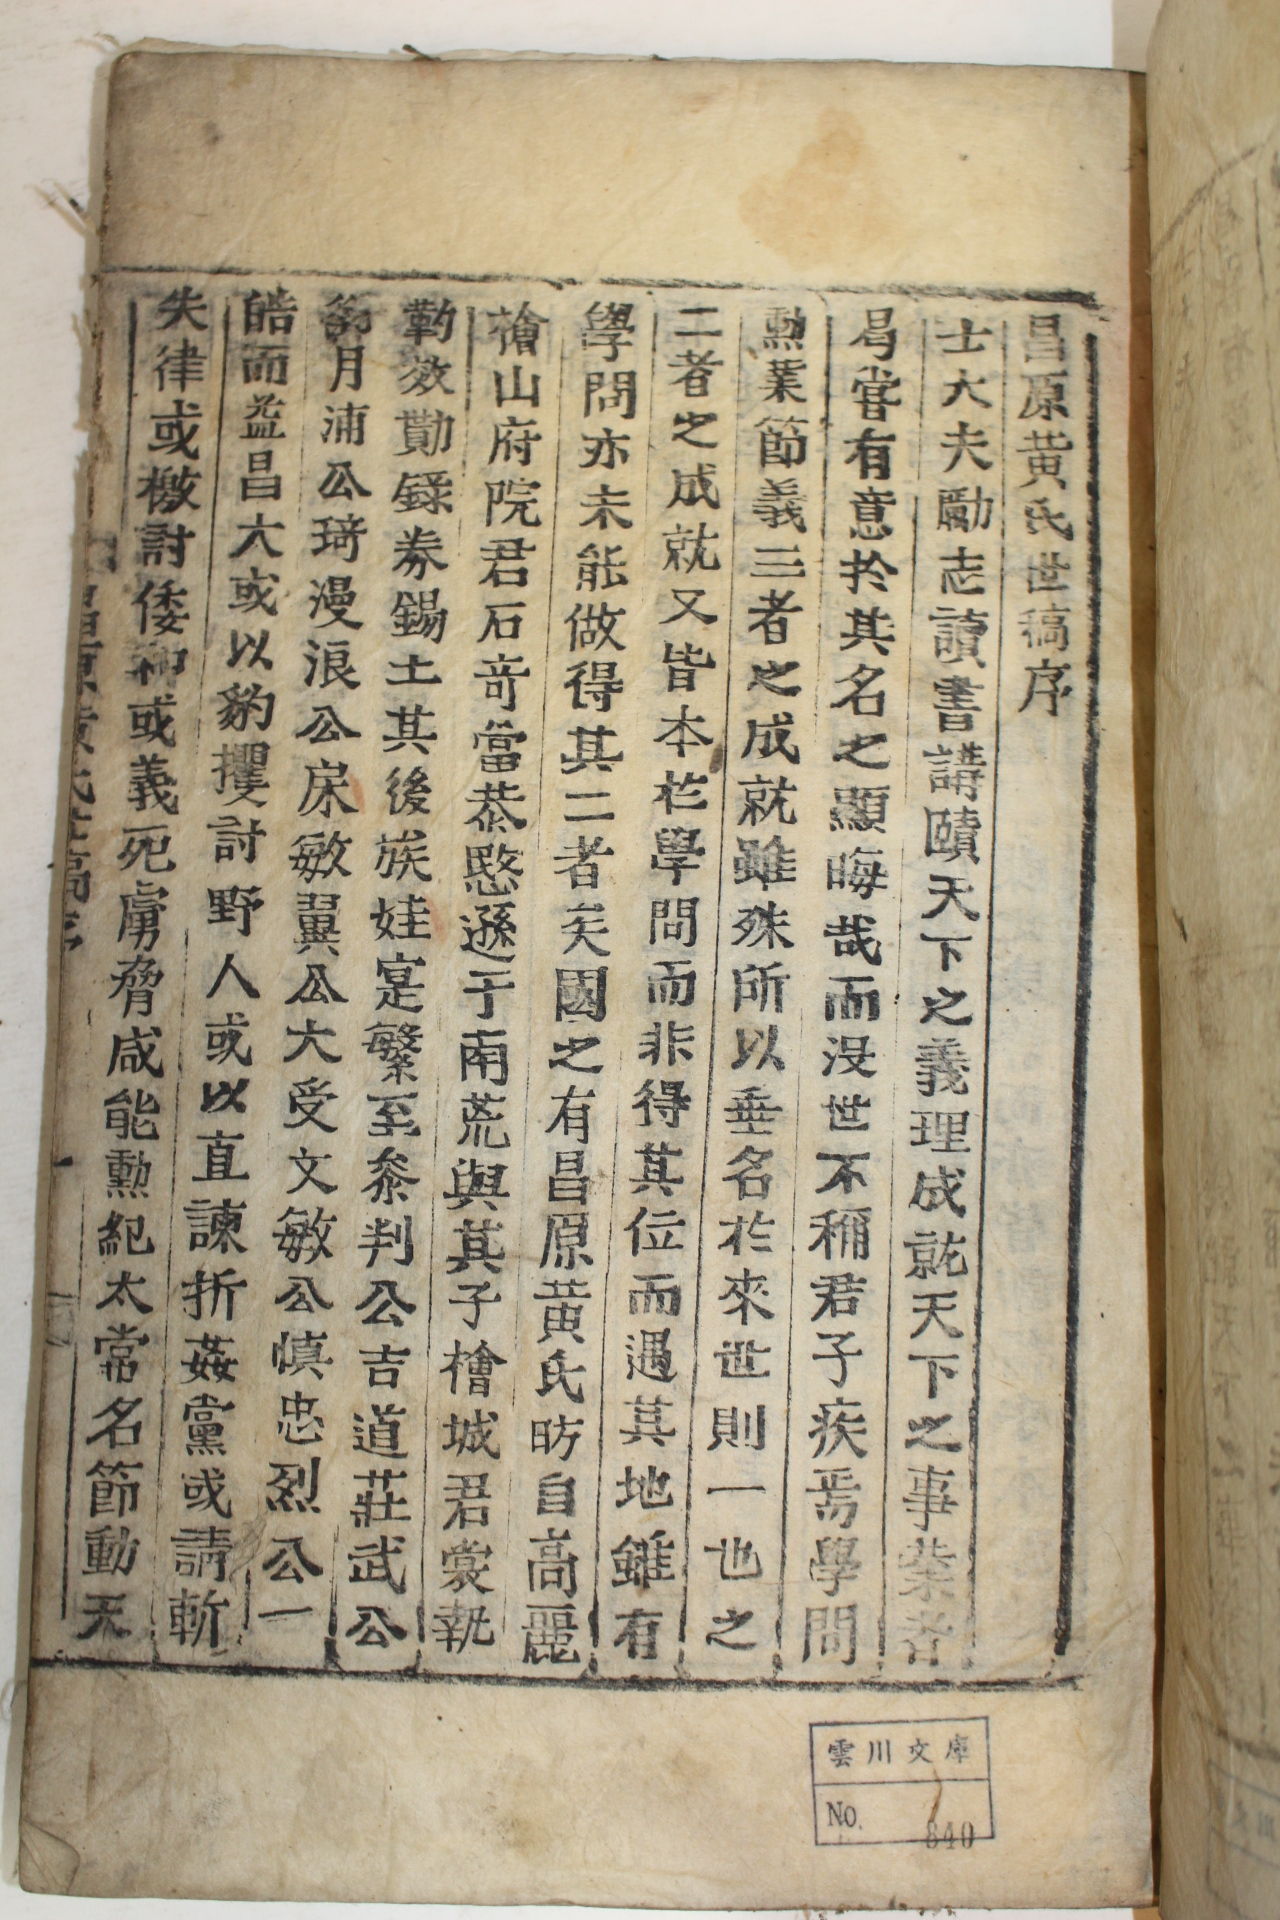 昌原黃氏世稿序
士大夫勵志讀書講賾天下之義理成就天下之事業者
曷嘗有意於其名之顯晦哉而沒世不稱君子疾焉學問
勲業節義三者之成就雖殊所以垂名於來世則一也之
二者之成就又皆本於學問而非得其位而遇其地雖有
學問亦未能做得其二者矣國之有昌原黃氏昉自高麗
檜山府院君石奇當恭愍遜于南荒與其子檜城君裳執
靮效勤錄券錫土其後族姓寔繁至叅判公吉道莊武公
衡月浦公琦漫浪公㦿敏翼公大受文敏公愼忠烈公一
皓而益昌大或以豹攫討野人或以直諫折姦黨或請斬
失律或檄討倭神或義死虜脅咸能勲紀太常名節動天
雲川文庫
No. 840